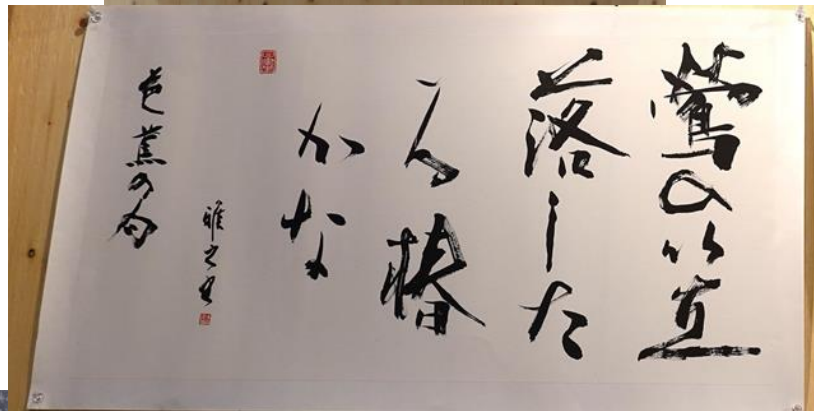 鶯の笠
落した
る椿
かな
雅之書
芭蕉の句